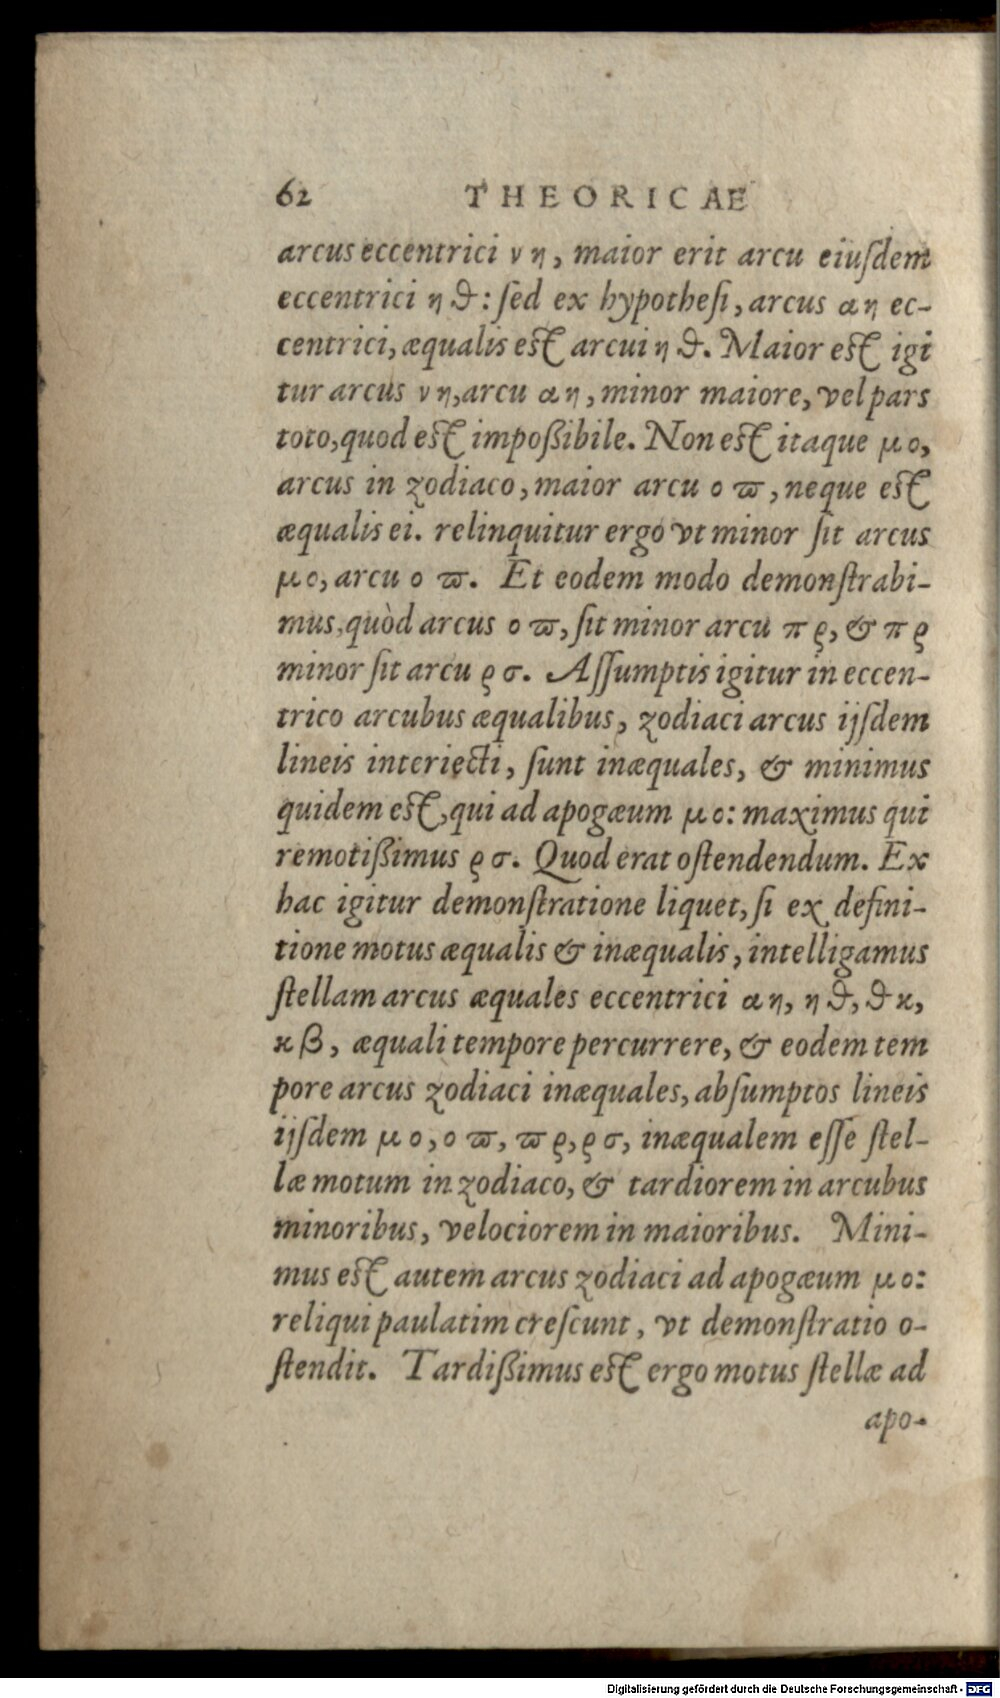 62 THEORICAE
arcus eccentrici ν η, maior erit arcu eiuſdem
eccentrici η ϑ: ſed ex hypotheſi, arcus α η ec-
centrici, æqualis eſt arcui η ϑ. Maior eſt igi
tur arcus ν η, arcu α η, minor maiore, vel pars
toto, quod eſt impoßibile. Non eſt itaque μ ο,
arcus in zodiaco, maior arcu ο ϖ, neque eſt
æqualis ei. relinquitur ergo vt minor ſit arcus
μ ο, arcu ο ϖ. Et eodem modo demonſtrabi-
mus, quòd arcus ο ϖ, ſit minor arcu π ϱ, & π ϱ
minor ſit arcu ϱ σ. Aſſumptis igitur in eccen-
trico arcubus æqualibus, zodiaci arcus ijſdem
lineis interiecti, ſunt inæquales, & minimus
quidem eſt, qui ad apogæum μ ο: maximus qui
remotißimus ϱ σ. Quod erat oſtendendum. Ex
hac igitur demonſtratione liquet, ſi ex defini-
tione motus æqualis & inæqualis, intelligamus
ſtellam arcus æquales eccentrici α η, η ϑ, ϑ κ,
κ β, æquali tempore percurrere, & eodem tem
pore arcus zodiaci inæquales, abſumptos lineis
ijſdem μ ο, ο ϖ, ϖ ϱ, ϱ σ, inæqualem eſſe ſtel-
læ motum in zodiaco, & tardiorem in arcubus
minoribus, velociorem in maioribus. Mini-
mus eſt autem arcus zodiaci ad apogæum μ ο:
reliqui paulatim creſcunt, vt demonſtratio o-
ſtendit. Tardißimus eſt ergo motus ſtellæ ad
apo-
Digitalisierung gefördert durch die Deutsche Forschungsgemeinschaft - DFG